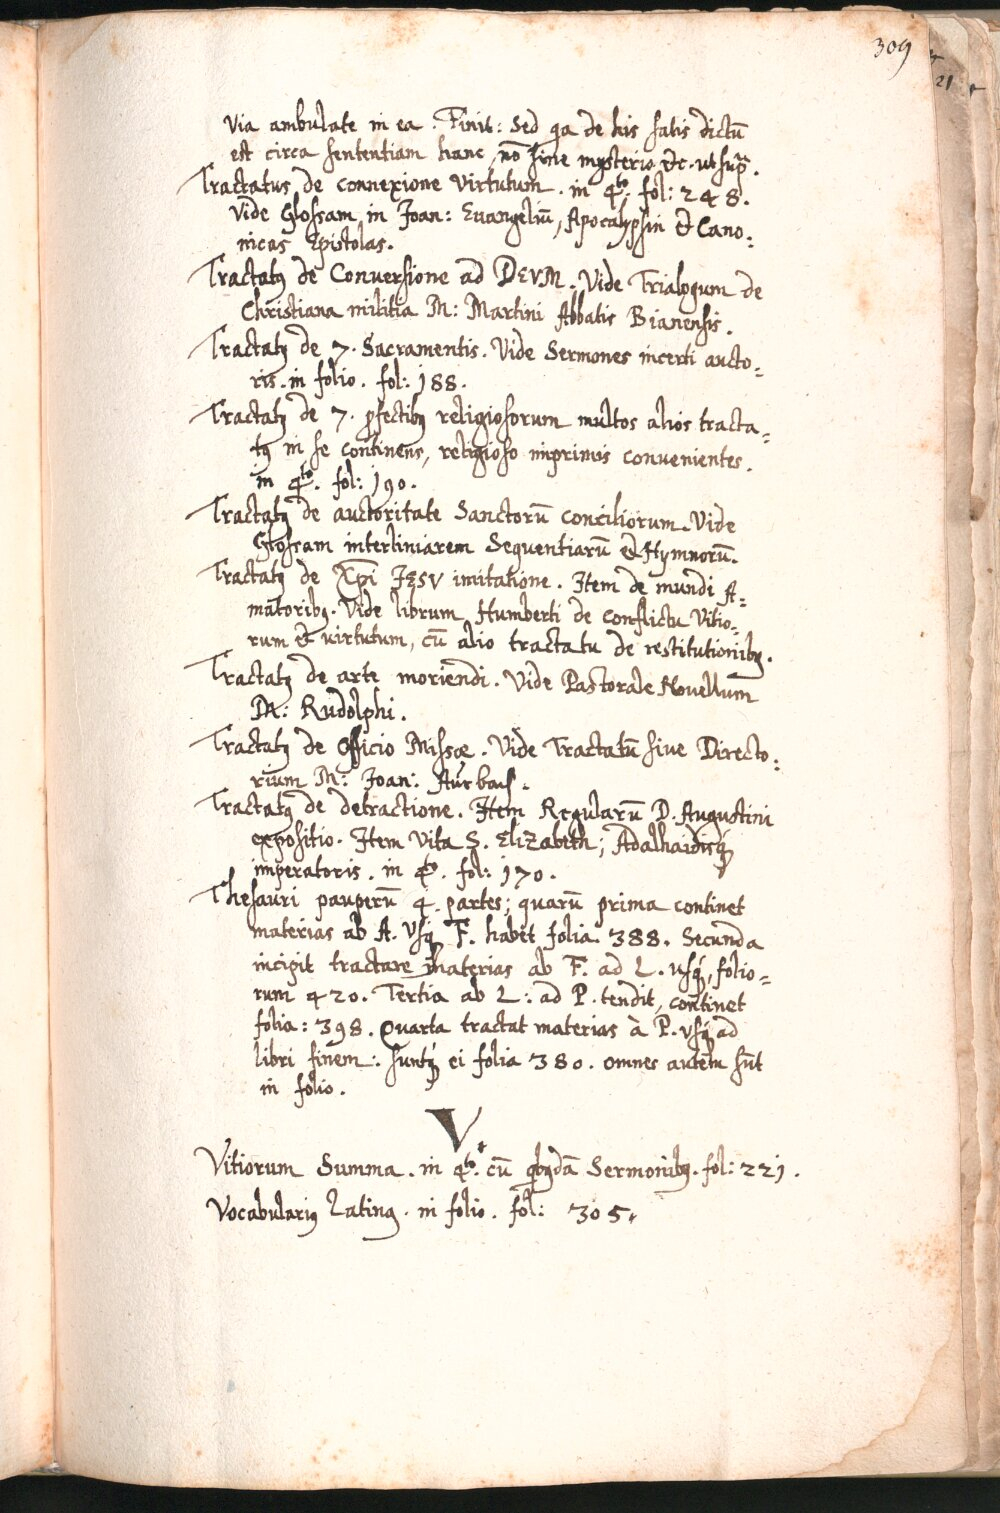 309
21
Via ambulate in ea. Finit: Sed qa de his satis dictū
est circa sententiam hanc, nō sine mysterio &c. ut supª.
Tractatus de connexione Virtutum. in 4to. fol: 248.
Vide Glossam in Joan: Evangeliū, Apocalypsin & Cano:
nicas Epistolas.
Tractatꝰ de Conversione ad DEVM. Vide Trialogum de
Christiana militia M: Martini Abbatis Bianensis.
Tractatꝰ de 7. Sacramentis. Vide Sermones incerti aucto:
ris. in folio. fol: 188.
Tractatꝰ de 7. ꝓfectibꝰ religiosorum multos alios tracta=
tꝰ in se continens, religioso imprimis convenientes.
in 4to. fol: 190.
Tractatꝰ de auctoritate Sanctorū conciliorum. Vide
Glossam interliniarem Sequentiarū & Hymnorū.
Tractatꝰ de Xp̄i JESV imitatione. Item de mundi A=
matoribꝰ. Vide librum Humberti de conflictu Vitio=
rum & virtutum, cū alio tractatu de restitutionibꝰ.
Tractatꝰ de arte moriendi. Vide Pastorale Novellum
M: Rudolphi.
Tractatꝰ de Officio Missæ. Vide Tractatū sive Directo:
rium M: Joan: Aurbach.
Tractatꝰ de detractione. Item Regularū D. Augustini
expositio. Item Vita S. Elizabeth; Adalhaidisq́
imperatoris. in 4to. fol: 170.
Thesauri pauperū 4. partes; quarū prima continet
materias ab A. usq́ F. habet folia 388. Secunda
incipit tractare materias ab F. ad L. usq́, folio=
rum 420. Tertia ab L: ad P. tendit, continet
folia: 398. Quarta tractat materias à P. usq́ ad
libri finem: suntq́ ei folia 380. omnes autem sūt
in folio.
V
Vitiorum Summa. in 4to. cū qbꝰdā Sermonibꝰ. fol: 221.
Vocabulariꝰ Latinꝰ. in folio. fol: 305.